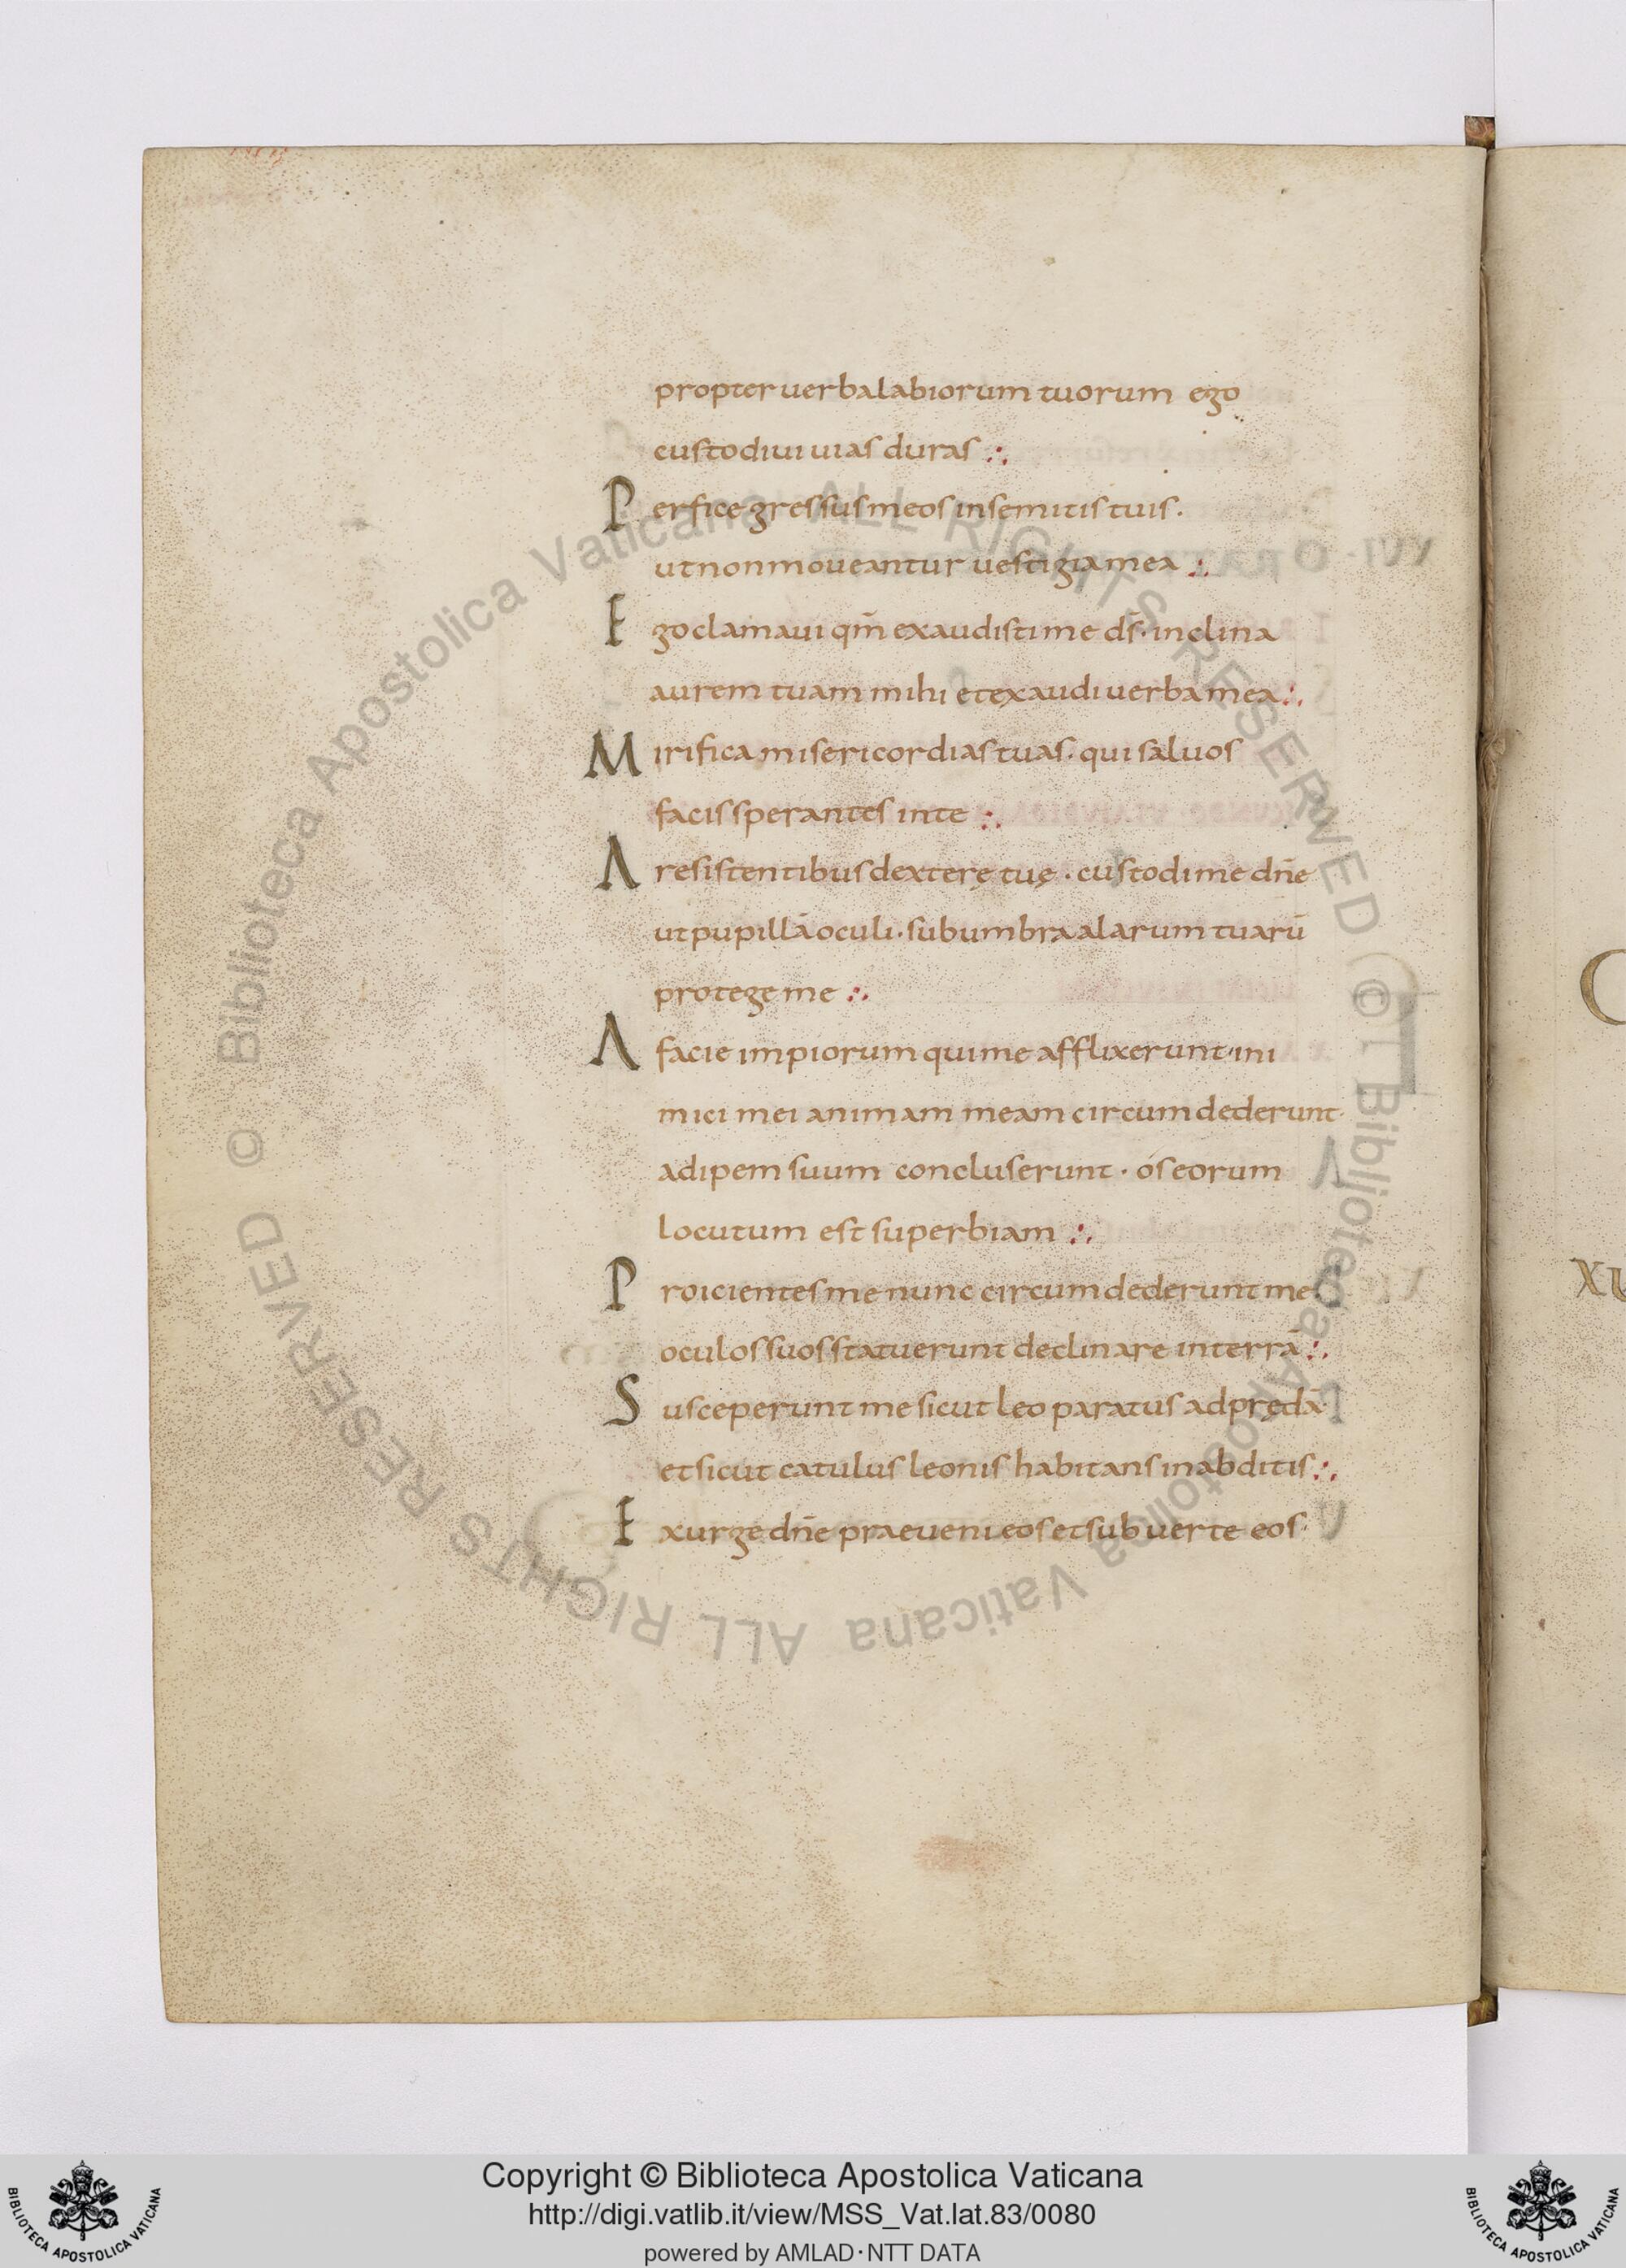 propter uerba labiorum tuorum ego
custodiui uias duras :.
Perfice gressus meos in semitis tuis.
ut non moueantur uestigia mea :.
Ego clamaui qm̄ exaudisti me ds̄ · inclina
aurem tuam mihi et exaudi uerba mea :.
Mirifica misericordias tuas · qui saluos
facis sperantes in te :.
A resistentibus dexterę tuę · custodi me dn̄e
ut pupillā oculi · sub umbra alarum tuarū
protege me :.
A facie impiorum qui me afflixerunt · ini
mici mei animam meam circumdederunt ·
adipem suum concluserunt · os eorum
locutum est superbiam :.
Proicientes me nunc circumdederunt me
oculos suos statuerunt declinare in terrā :.
Susceperunt me sicut leo paratus ad prędā ·
et sicut catulus leonis habitans in abditis :.
Exurge dn̄e praeueni eos et subuerte eos ·
© Biblioteca Apostolica Vaticana ALL RIGHTS RESERVED © Biblioteca Apostolica Vaticana ALL RIGHTS RESERVED
Copyright © Biblioteca Apostolica Vaticana
http://digi.vatlib.it/view/MSS_Vat.lat.83/0080
powered by AMLAD·NTT DATA
BIBLIOTECA APOSTOLICA VATICANA
BIBLIOTECA APOSTOLICA VATICANA